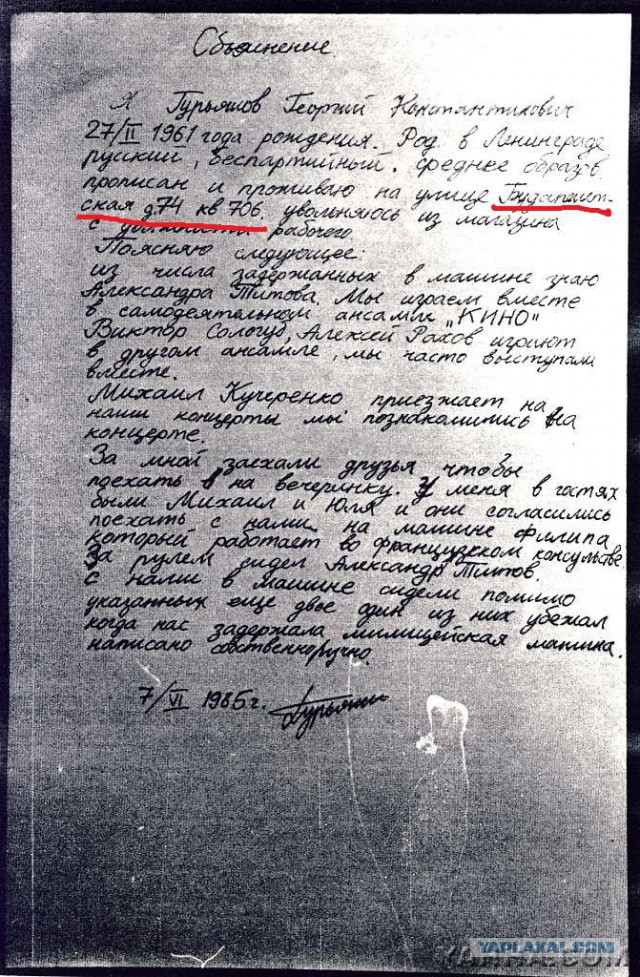 Объяснение.
Я Гурьянов Георгий Константинович
27/II 1961 года рождения. Род. в Ленинграде
руский, беспартийный. среднее образов.
прописан и проживаю на улице Будапешт-
ская д74 кв 706. увольняюсь из магазина
с должности рабочего
Поясняю следующее:
из числа задержанных в машине знаю
Александра Титова. Мы играем вместе
в самодеятельном ансамбле „КИНО"
Виктор Сологуб, Алексей Рахов играют
в другом ансамле, мы часто выступали
вместе.
Михаил Кучеренко приезжает на
наши концерты мы познакомились на
концерте.
За мной заехали друзья чтобы
поехать на вечеринку. У меня в гостях
были Михаил и Юля и они согласились
поехать с нами на машине Филипа
который работает во французском консульстве.
За рулем сидел Александр Титов.
с нами в машине сидели помимо
указанных еще двое один из них убежал
когда нас задержала милицейская машина.
написано собственноручно.
7/VI 1985 г. Гурьянов
YAPLAKAL.COM